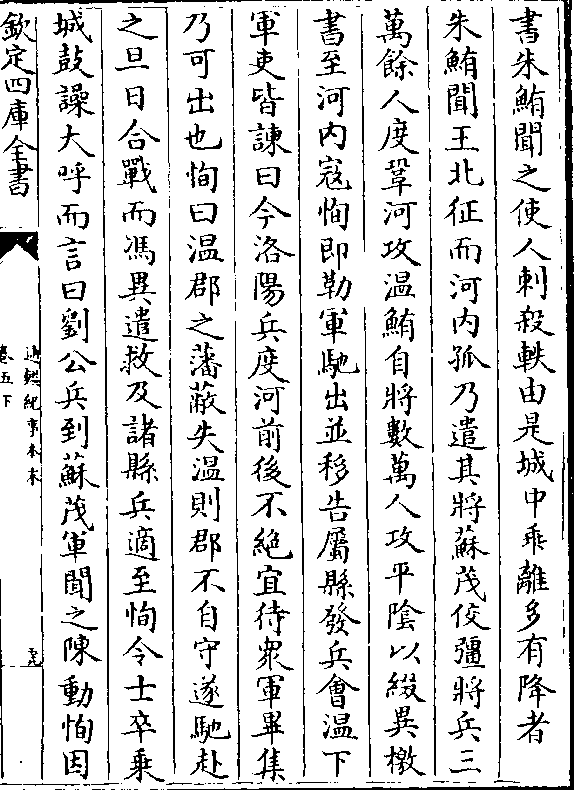 書朱鮪聞之使人刺殺軼由是城中乖離多有降者
朱鮪聞王北征而河内孤乃遣其將蘇茂佼彊將兵三
萬餘人度鞏河攻温鮪自將數萬人攻平陰以綴異檄
書至河内寇恂即勒軍馳出並移告屬縣發兵會温下
軍吏皆諫曰今洛陽兵度河前後不絶宜待衆軍畢集
乃可出也恂曰温郡之藩蔽失温則郡不自守遂馳赴
之旦日合戰而馮異遣救及諸縣兵適至恂令士卒乗
城鼓譟大呼而言曰劉公兵到蘇茂軍聞之陳動恂因
欽定四庫全書
通鑑紀事本末
卷五下